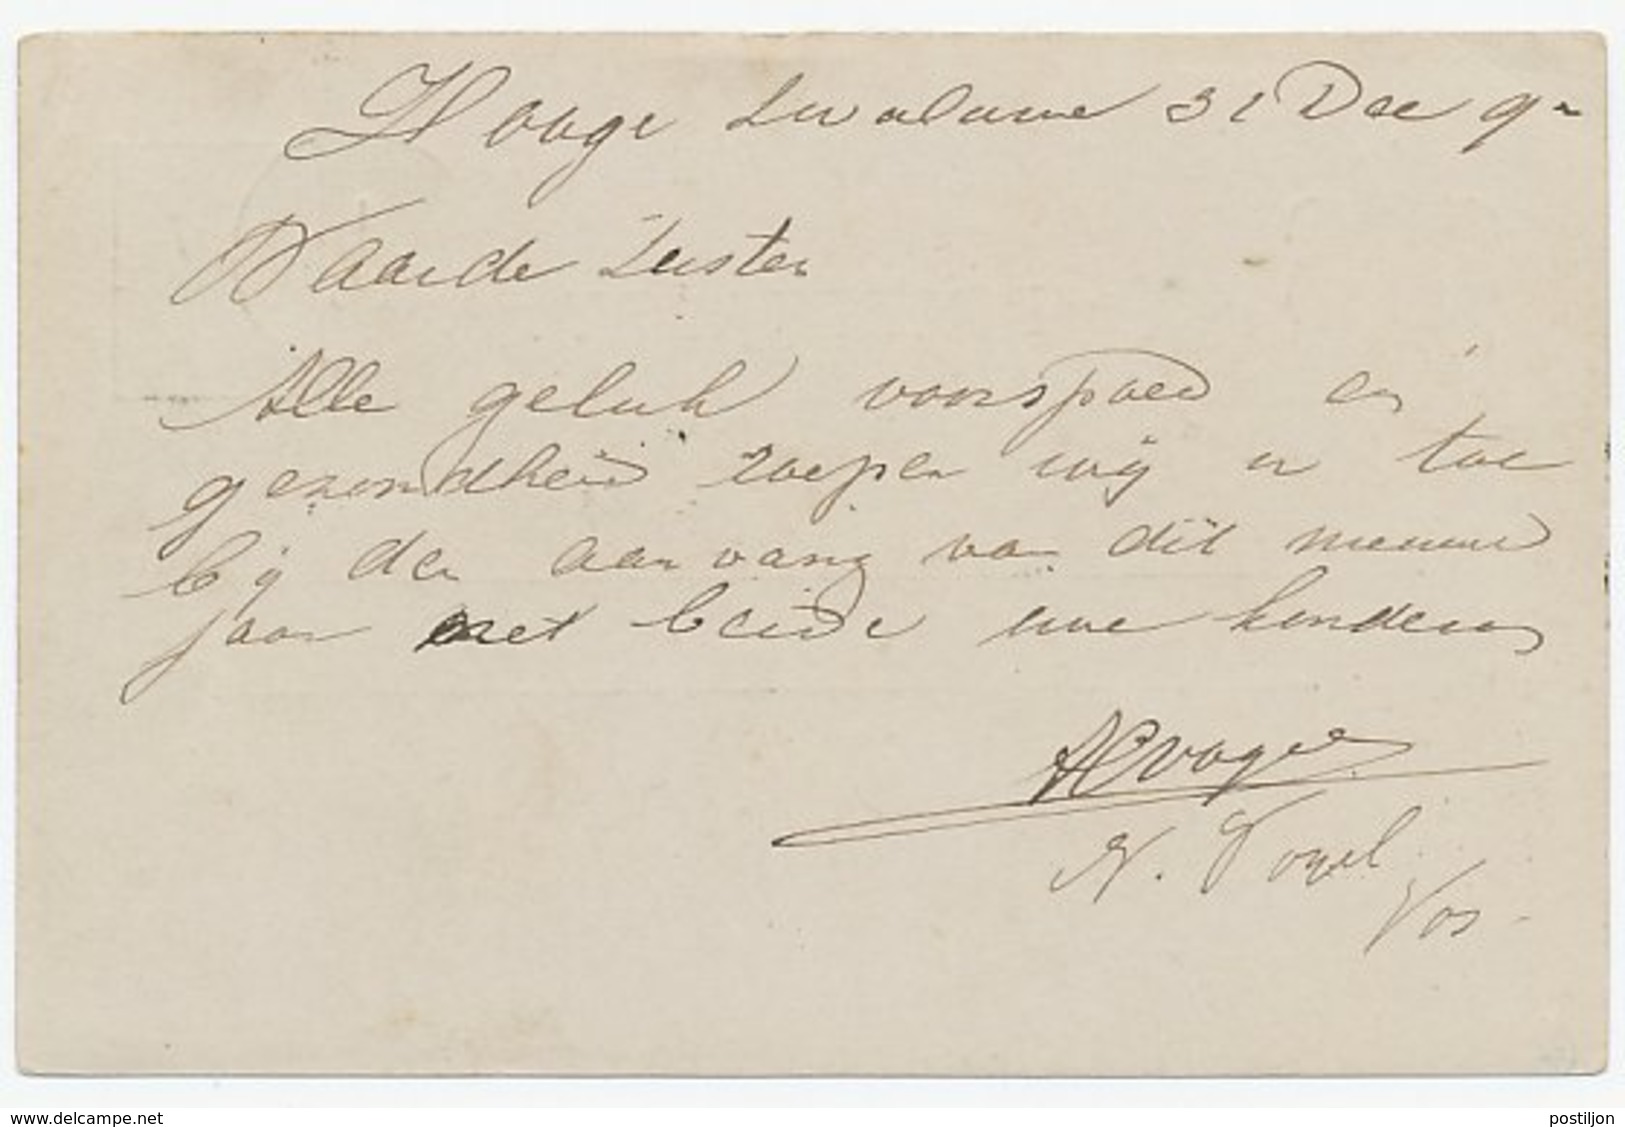 Hooge Zwaluwe 31 Dec 9
Waarde Zuster
Alle geluk voorspoed en
gezondheid roepen wij u toe
bij den aanvang van dit nieuwe
jaar met beide uwe kinderen
A Vogel
N. Vogel
Vos
www.delcampe.net
postiljon